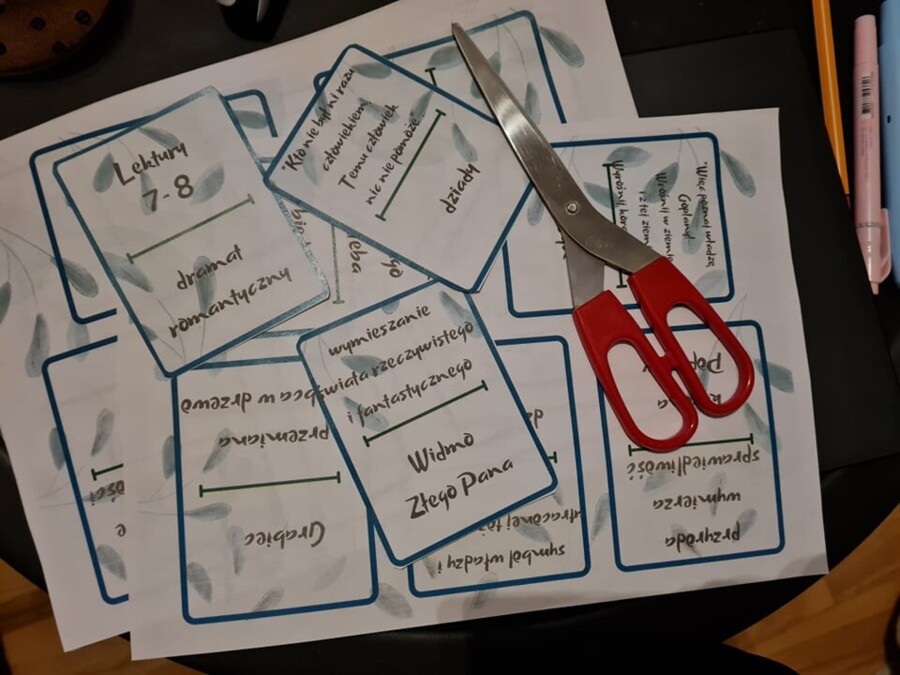 Lektury
7-8
dramat
romantyczny
"Kto nie był ni razu
człowiekiem,
Temu człowiek
nic nie pomoże"
dziady
wymieszanie
świata rzeczywistego
i fantastycznego
Widmo
Złego Pana
"Więc poznaj władzę
Goplany!
Wrośnij w ziemię
i z tej ziemi
Wyrośnij
w drzewo
przemiana
Grabiec
symbol władzy i
utraconej
przyroda
wymierza
sprawiedliwość